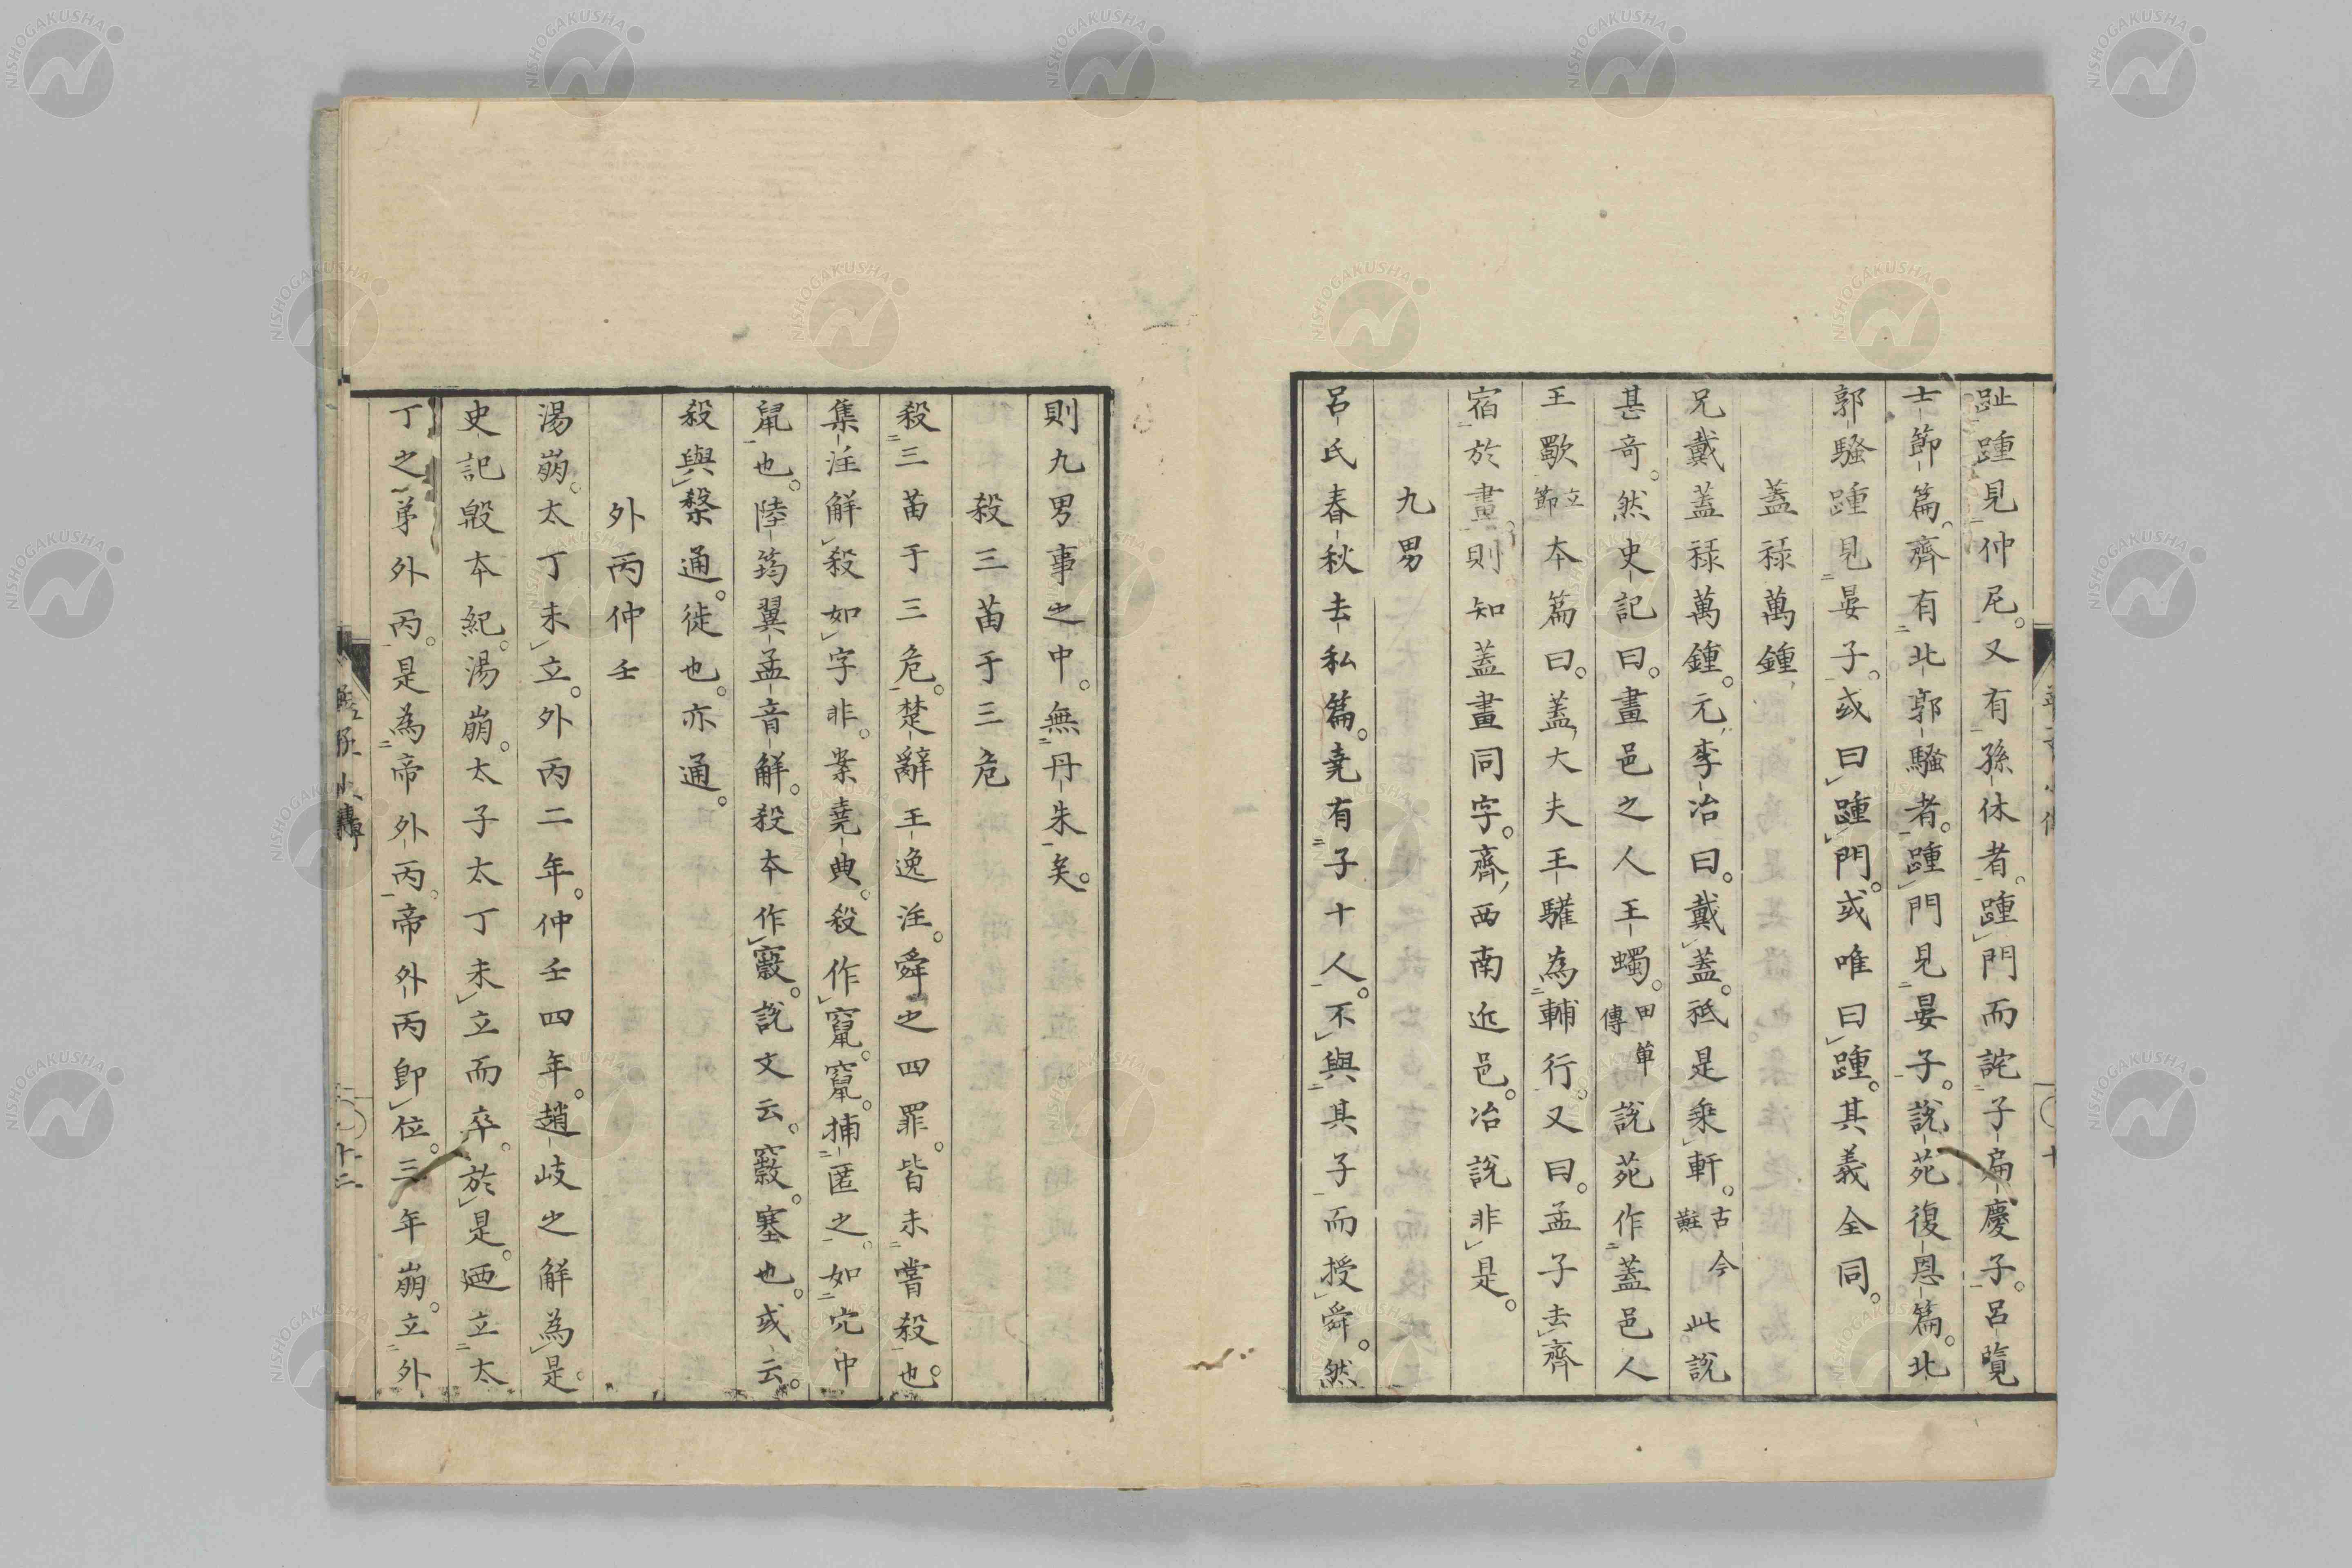 趾踵見仲尼。又有孫休者。踵門而詫子扁慶子。呂覧
士節篇。齊有北郭騒者。踵門見晏子。説苑復恩篇。北
郭騒踵見晏子。或曰踵門。或唯曰踵。其義全同。
蓋禄萬鍾
兄戴蓋禄萬鍾。元李冶曰。戴蓋。祗是乘軒。古今黈此説
甚奇。然史記曰。畫邑之人王蠋。田單傳説苑作蓋邑人
王歜立節本篇曰。蓋大夫王驩為輔行。又曰。孟子去齊
宿於畫。則知蓋畫同字。齊西南近邑。冶説非是。
九男
呂氏春秋去私篇。堯有子十人。不與其子而授舜。然
則九男事之中。無丹朱矣。
殺三苗于三危
殺三苗于三危。楚辭王逸注。舜之四罪。皆未嘗殺也。
集注解殺如字非。案堯典。殺作竄。竄。捕匿之。如穴中
鼠也。陸筠翼孟音解。殺本作䆮。説文云。䆮。塞也。或云。
殺與㮟通。徙也。亦通。
外丙仲壬
湯崩。太丁未立。外丙二年。仲壬四年。趙岐之解為是。
史記殷本紀。湯崩。太子太丁未立而卒。於是。廼立太
丁之弟外丙。是為帝外丙。帝外丙即位。三年崩。立外
十二